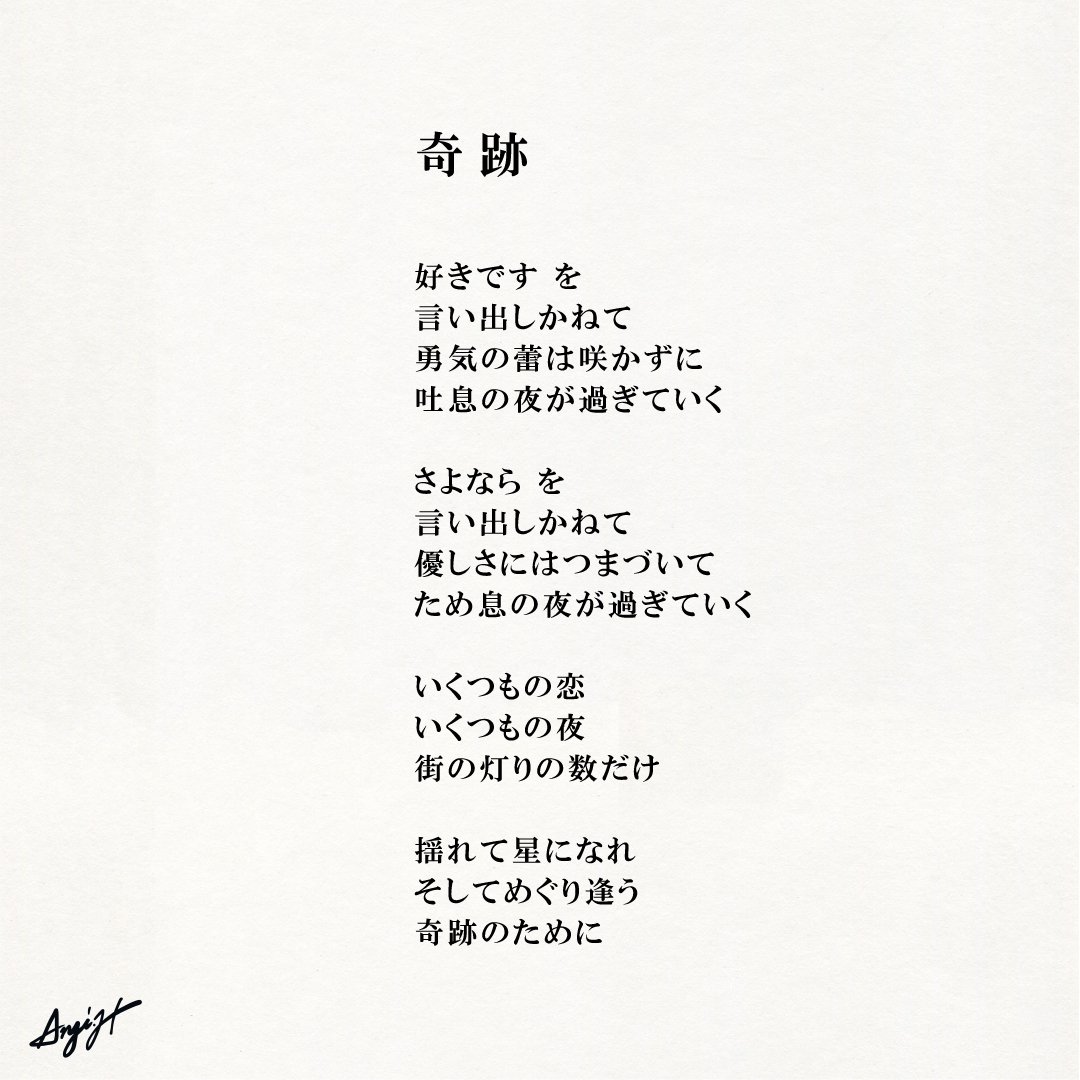 奇跡
好きです を
言い出しかねて
勇気の蕾は咲かずに
吐息の夜が過ぎていく
さよなら を
言い出しかねて
優しさにはつまづいて
ため息の夜が過ぎていく
いくつもの恋
いくつもの夜
街の灯りの数だけ
揺れて星になれ
そしてめぐり逢う
奇跡のために